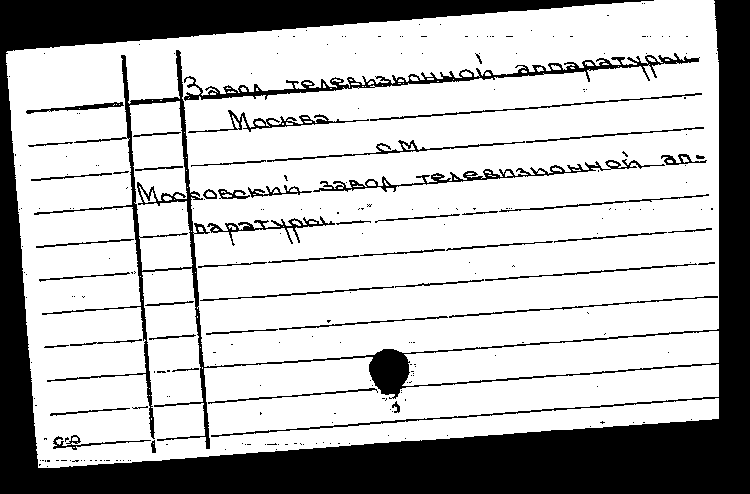 Завод телевизионной аппаратуры.
Москва.
с.м.
Московский завод телевизионной ап-
паратуры.